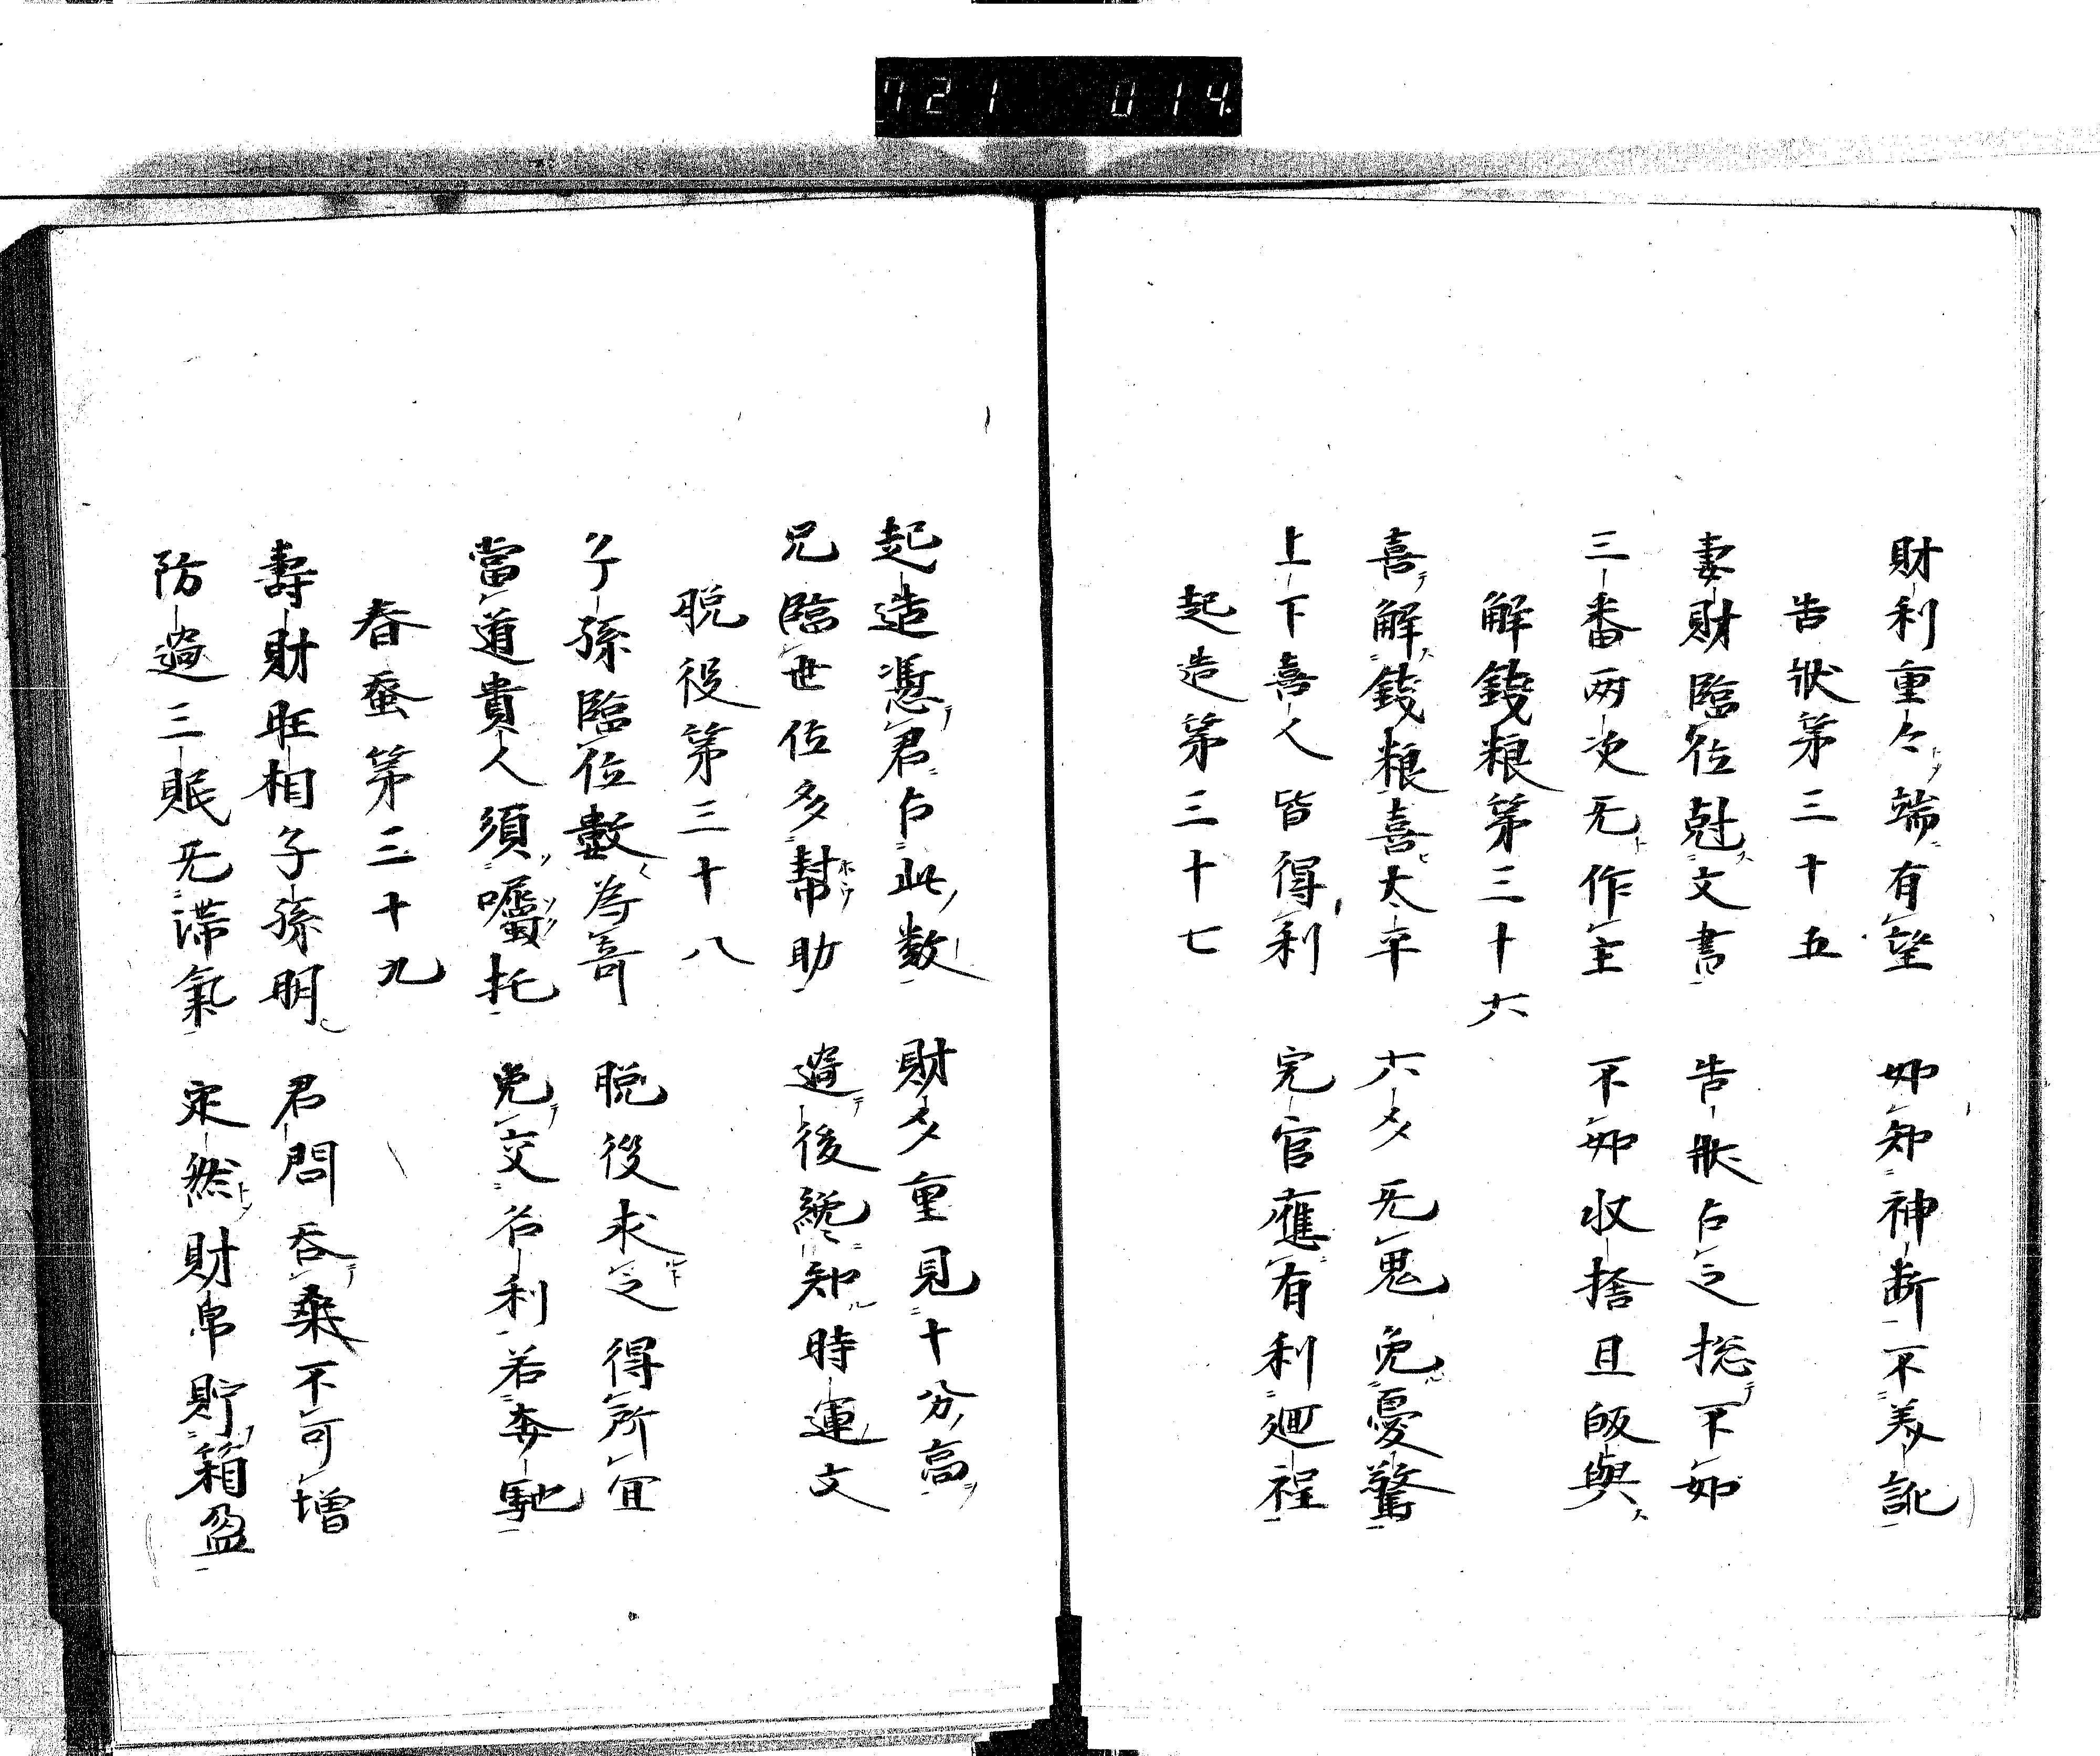 721 014
財利重々端有望 如知神断不差訛
告狀第三十五
妻財臨位尅文書 告狀占之揔不如
三番両次无作主 不如収捨且皈與
解錢粮第三十六
喜解錢粮喜太平 六爻无鬼免憂驚
上下喜人皆得利 完官應有利廻程
起造第三十七
起造憑君占此数 財爻重見十分高
兄臨世位多幇助 過後纔知時運
脱役第三十八
子孫臨位數為奇 脱役求之得所宜
當道貴人須囑托 免交名利若奔馳
春蚕第三十九
壽財旺相子孫明 君問 桒不可増
防過三眠无滞氣 定然財帛貯箱盈